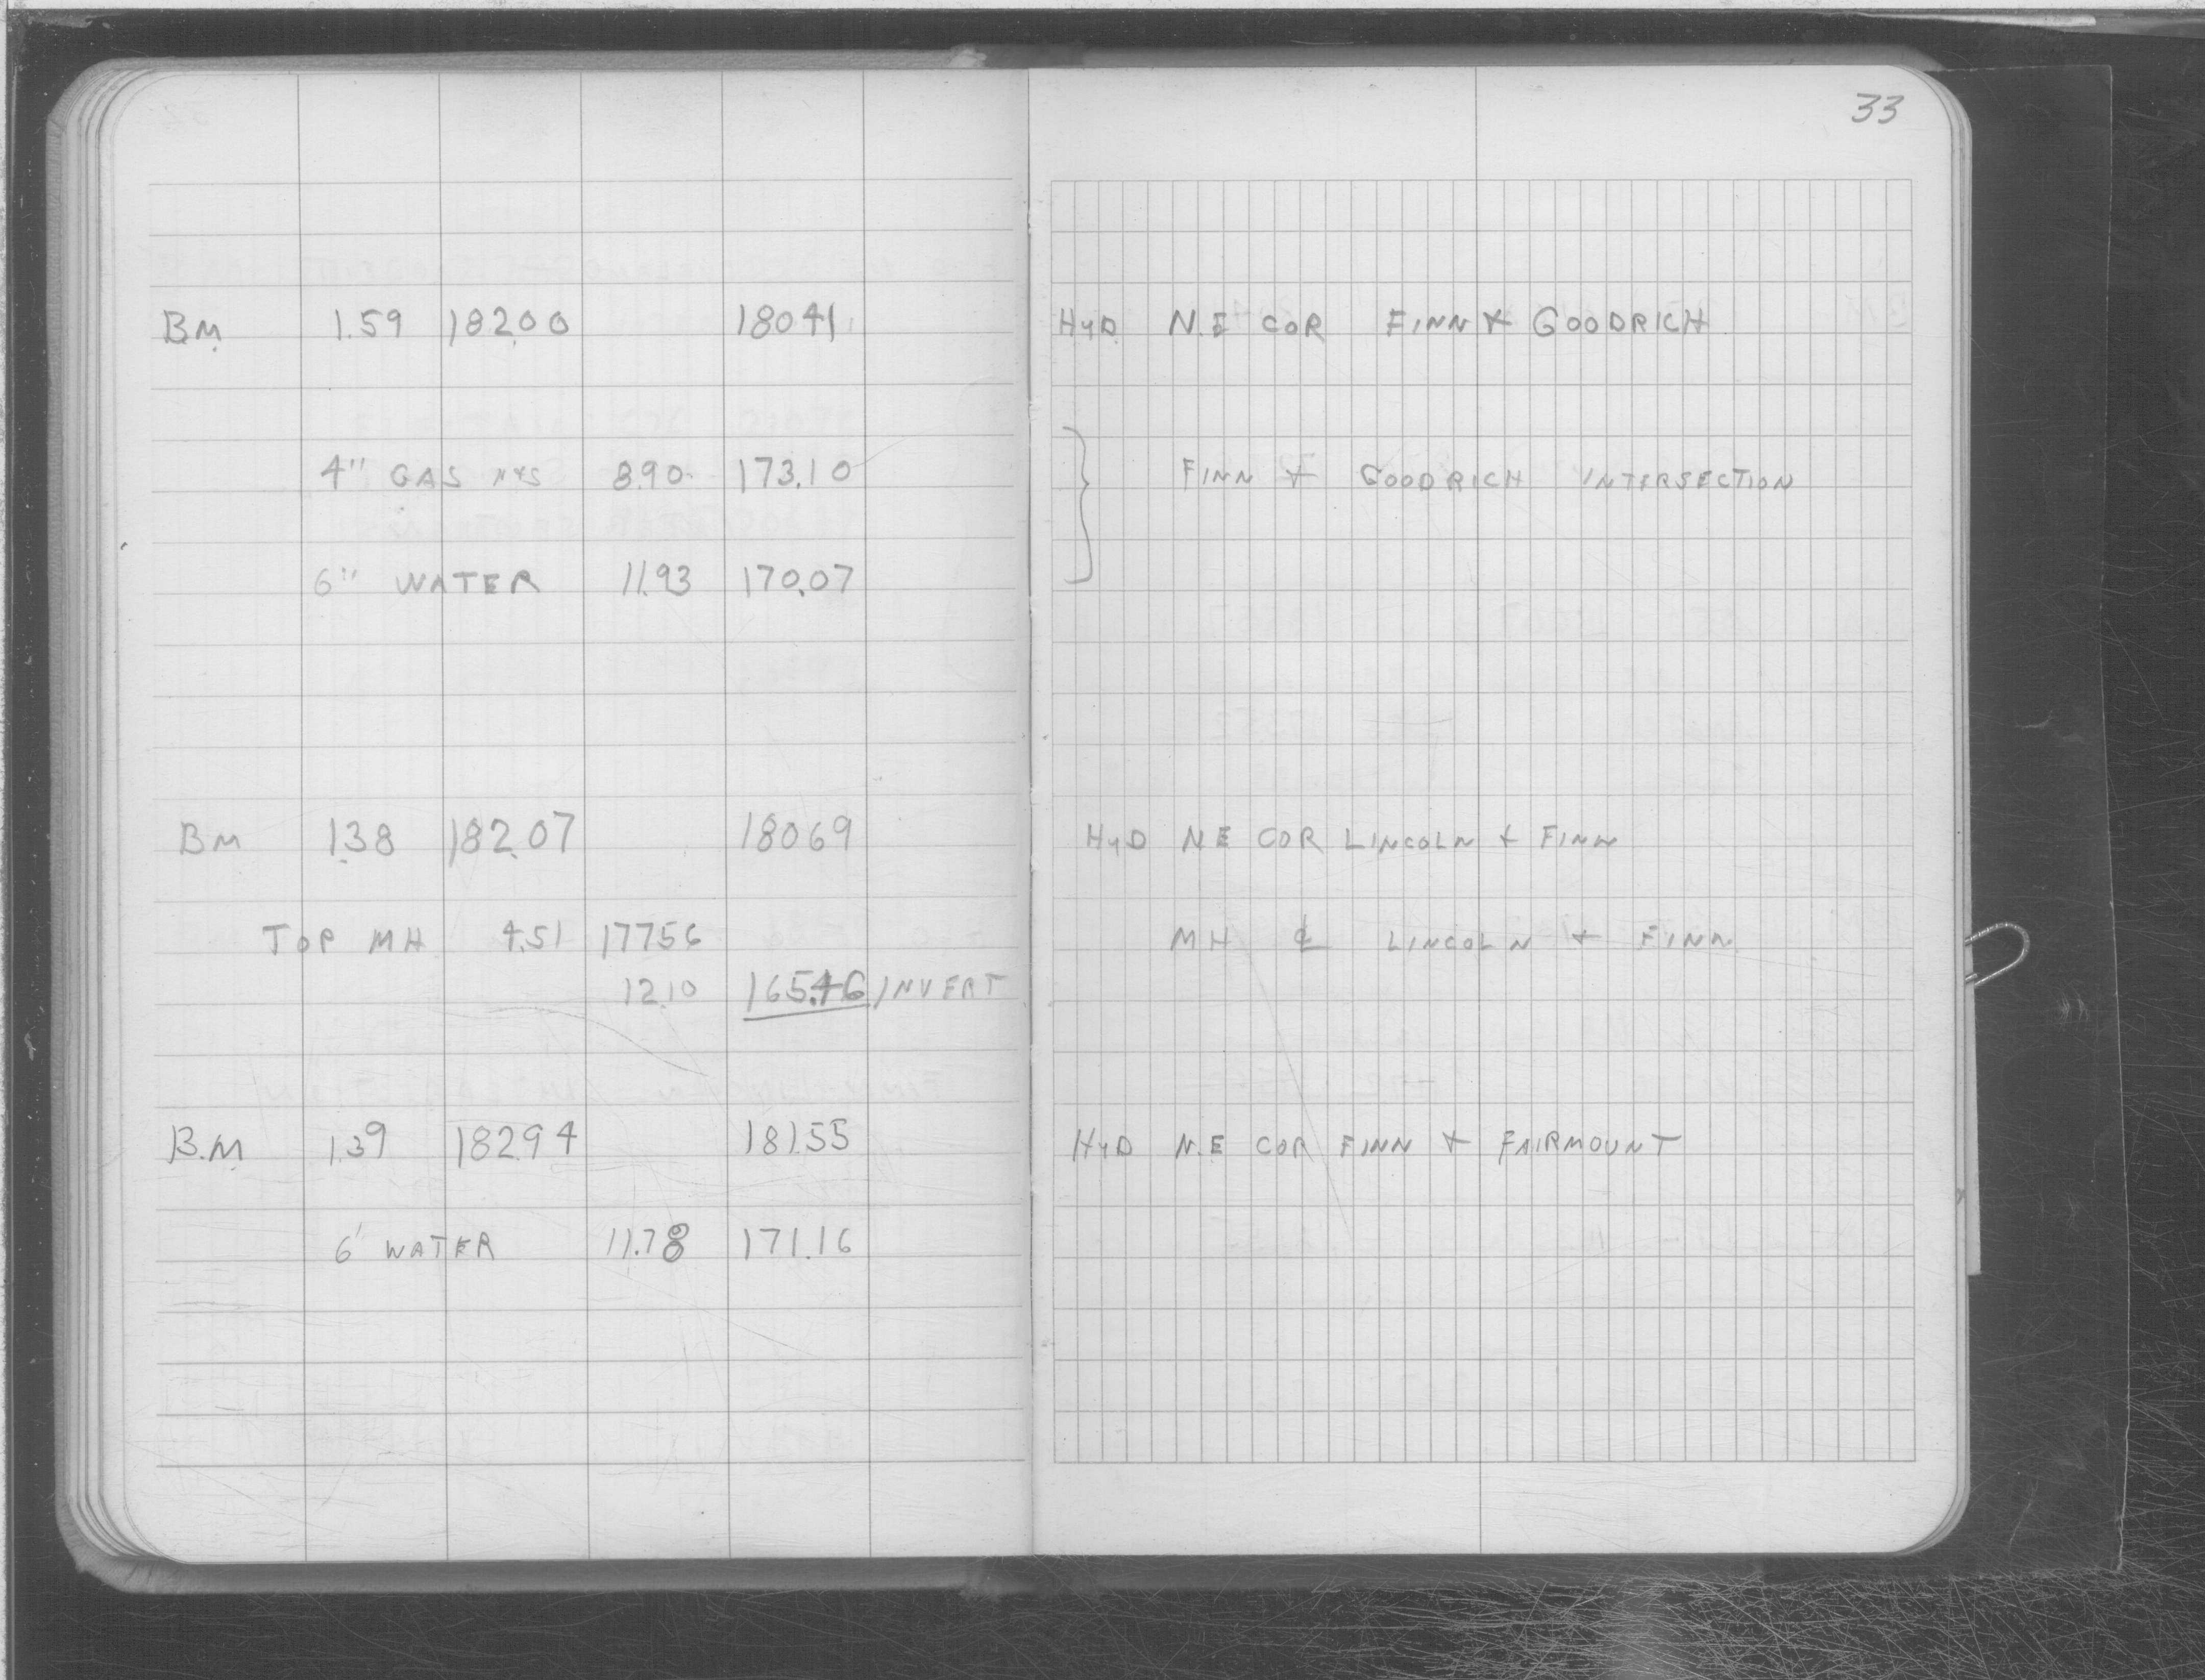 33
BM 1.59 182.00 180.41 HYD N.E COR FINN & GOODRICH
4" GAS N+S 8.90 173.10 FINN & GOODRICH INTERSECTION
6" WATER 11.93 170.07
BM 1.38 182.07 180.69 HYD N E COR LINCOLN & FINN
TOP MH 4.51 177.56 MH ℄ LINCOLN & FINN
12.10 165.46 INVERT
B.M 1.39 182.94 181.55 HYD N.E COR FINN & FAIRMOUNT
6' WATER 11.78 171.16